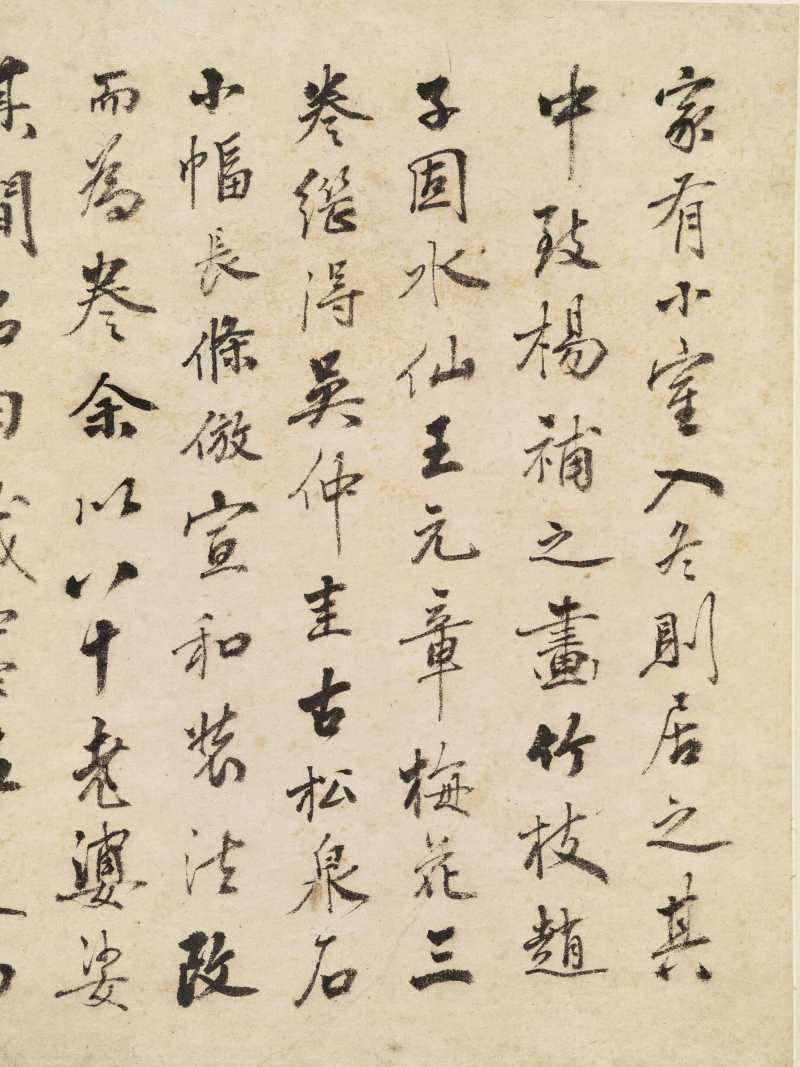 家有小室入冬則居之其
中致楊補之畫竹枝趙
子固水仙王元章梅花三
卷繼得吳仲圭古松泉石
小幅長條倣宣和裝法改
而為卷余以八十老婆娑
其間名曰歲寒